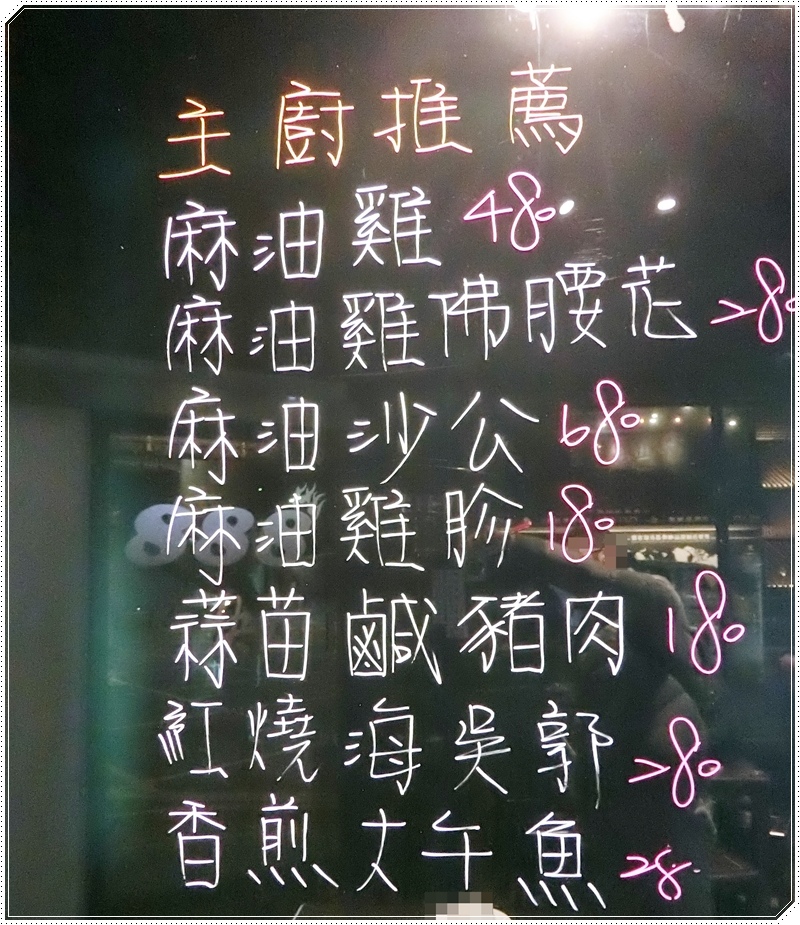 主廚推薦
麻油雞 480
麻油雞佛腰花 280
麻油沙公 680
麻油雞胗 180
蒜苗鹹豬肉 180
紅燒海吳郭 280
香煎大午魚 28